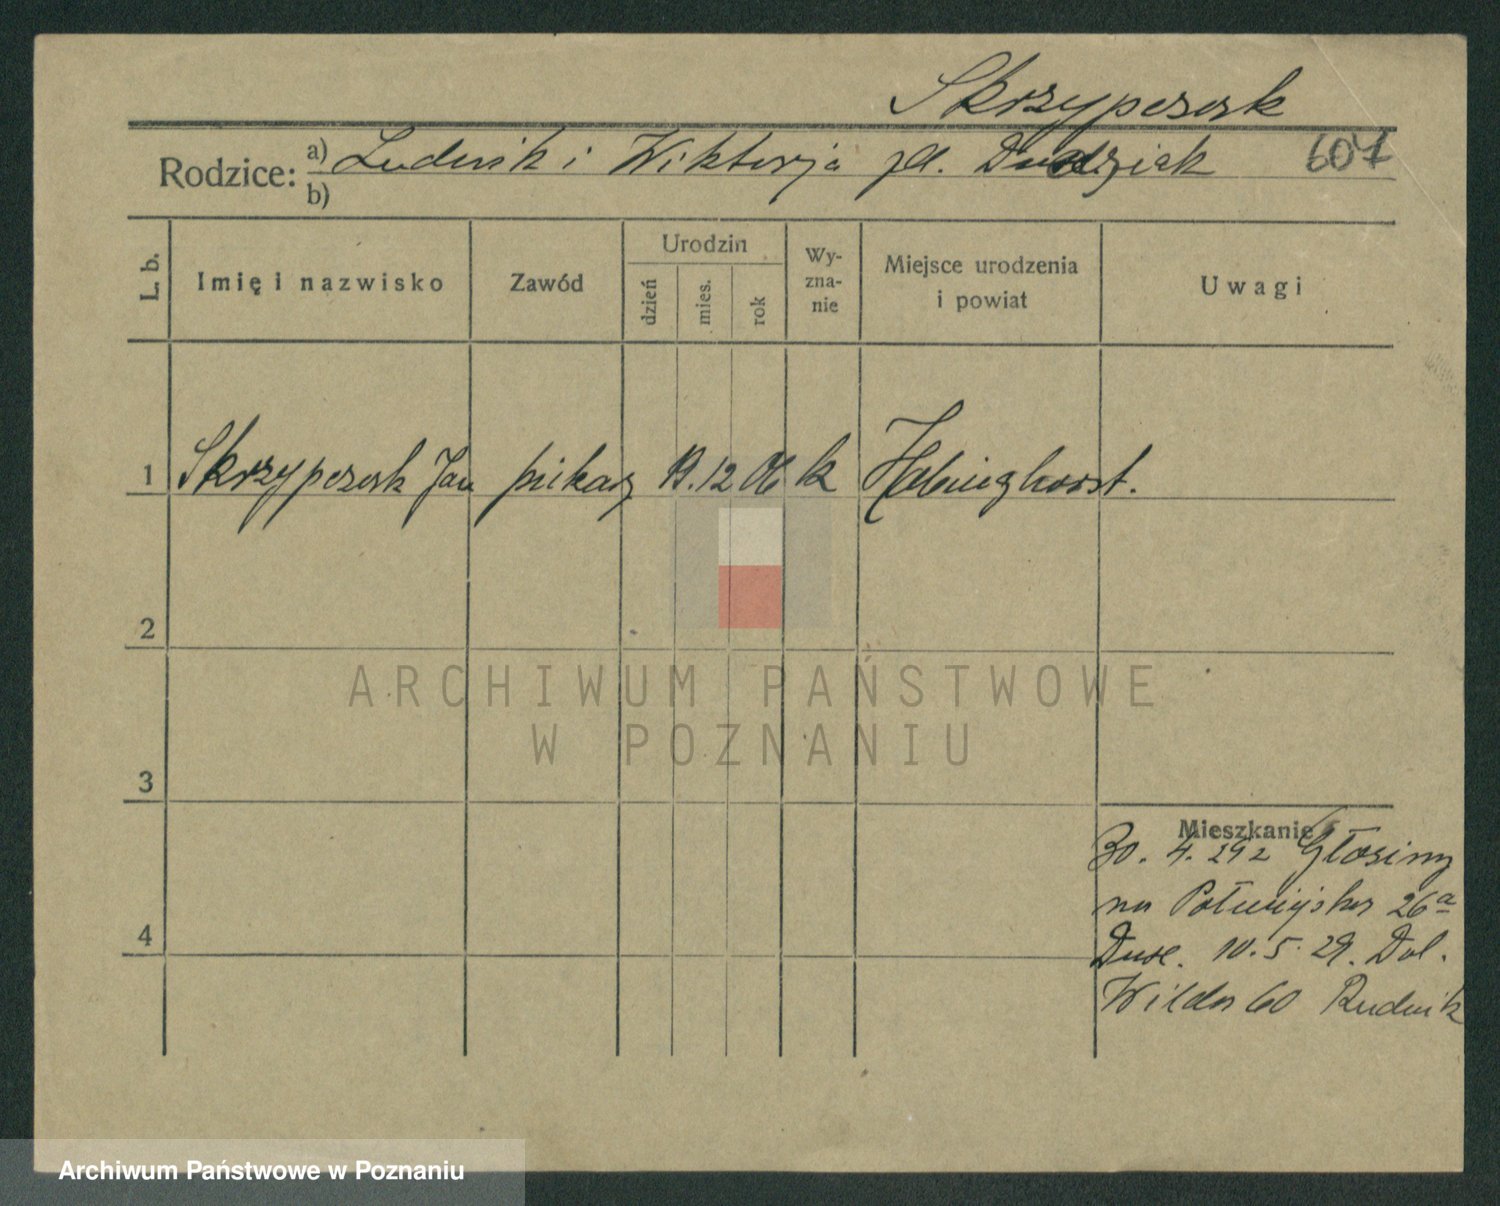 Skrzypczak
Rodzice: a) Ludwik i Wiktorja zd. Dudziak 607
b)
L. b. Imię i nazwisko Zawód Urodzin dzień mies. rok Wyznanie Miejsce urodzenia i powiat Uwagi
1 Skrzypczak Jan piekarz 12 06 k Habinghorst.
2
3
4
Mieszkanie
30. 4. 292
na 26a
10. 5. 29. Dol.
Wilda 60 Rudnik
ARCHIWUM PAŃSTWOWE
W POZNANIU
Archiwum Państwowe w Poznaniu